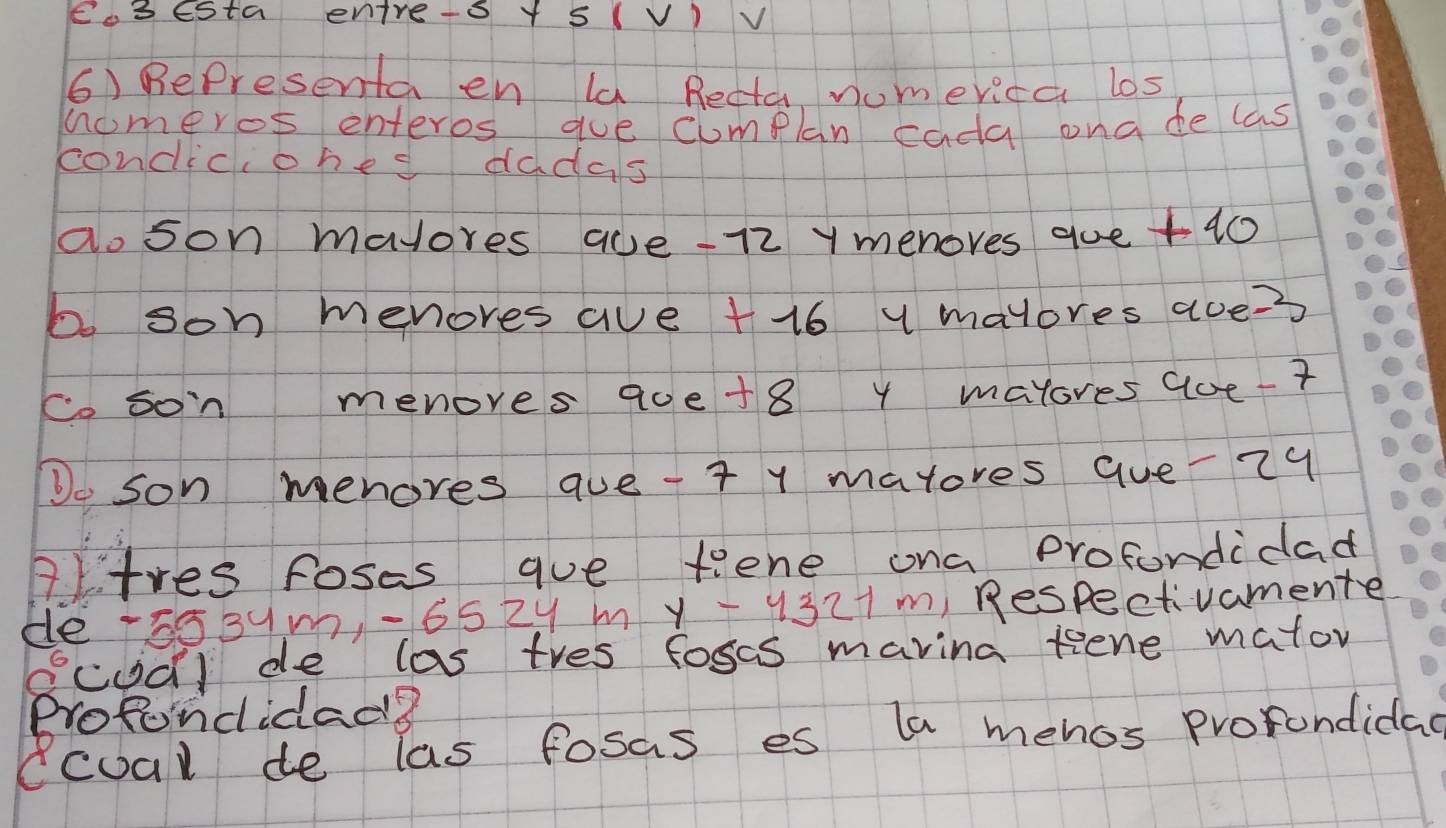 e. 3 esta entre -5 y 5 (V) V
6) Representa en la Recta numerica los
numeros enteros que cumplan cada una de las
condiciones dadas
a. son mayores que -12 y menores que +10
b. son menores que +16 y mayores que -3
c. son menores que +8 y mayores que -7
D. son menores que -7 y mayores que -24
7) tres fosas que tiene una profundidad
de -5534m, -6524 m y -4321 m, Respectivamente
¿cual de las tres fosas marina tiene mayor
Profundidad?
¿cual de las fosas es la menos profundidad